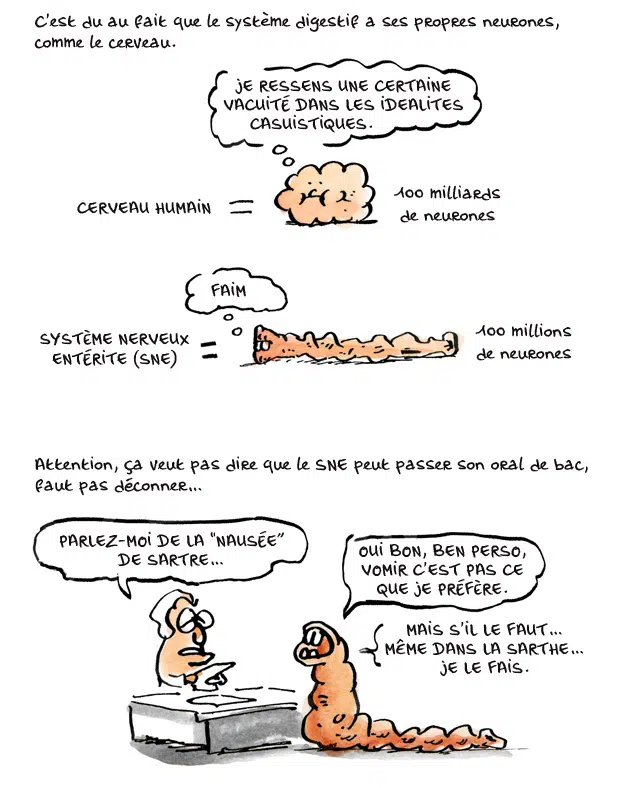 C'est du au fait que le système digestif a ses propres neurones,
comme le cerveau.
JE RESSENS UNE CERTAINE
VACUITÉ DANS LES IDEALITES
CASUISTIQUES.
CERVEAU HUMAIN =
100 milliards
de neurones
FAIM
SYSTÈME NERVEUX
ENTÉRITE (SNE) =
100 millions
de neurones
Attention, ça veut pas dire que le SNE peut passer son oral de bac,
faut pas déconner...
PARLEZ-MOI DE LA "NAUSÉE"
DE SARTRE...
OUI BON, BEN PERSO,
VOMIR C'EST PAS CE
QUE JE PRÉFÈRE.
MAIS S'IL LE FAUT...
MÊME DANS LA SARTHE...
JE LE FAIS.